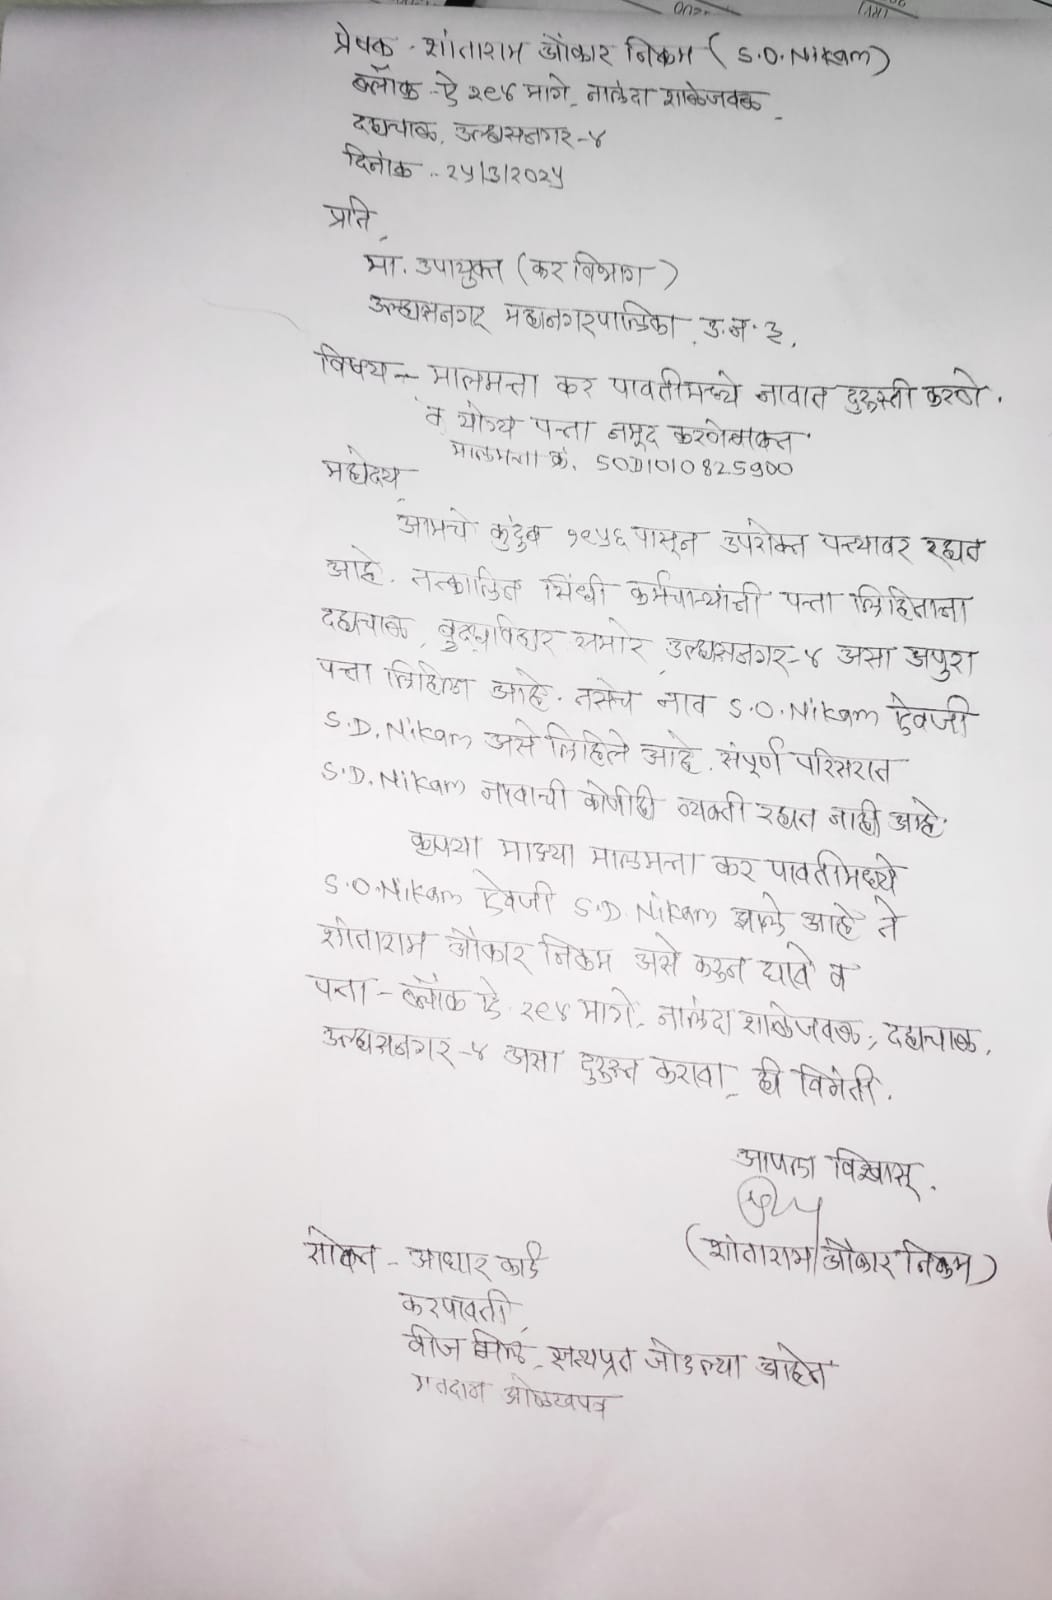 प्रेषक - शांताराम ओंकार निकम ( S.O.Nikam )
ब्लॉक - ऐ २९४ मागे, नालंदा शाळेजवळ,
दहाचाळ, उल्हासनगर-४
दिनांक .. २५/३/२०२५
प्रति,
मा. उपायुक्त ( कर विभाग )
उल्हासनगर महानगरपालिका, उ.न. ३.
विषय - मालमत्ता कर पावतीमध्ये नावात दुरुस्ती करणे.
व योग्य पत्ता नमूद करणेबाबत
मालमत्ता क्रं. 50D1010825900
महोदय,
आमचे कुटुंब १९५६ पासून उपरोक्त पत्त्यावर रहात
आहे. तत्कालित सिंधी कर्मचाऱ्यांनी पत्ता लिहिताना
दहाचाळ, बुद्धविहार समोर, उल्हासनगर-४ असा अपुरा
पत्ता लिहिला आहे. तसेच नाव S.O.Nikam ऐवजी
S.D.Nikam असे लिहिले आहे. संपूर्ण परिसरात
S.D.Nikam नावाची कोणीही व्यक्ती रहात नाही आहे.
कृपया माझ्या मालमत्ता कर पावतीमध्ये
S.O.Nikam ऐवजी S.D.Nikam झाले आहे ते
शांताराम ओंकार निकम असे करुन द्यावे व
पत्ता - ब्लॉक ऐ. २९४ मागे, नालंदा शाळेजवळ, दहाचाळ,
उल्हासनगर-४ असा दुरुस्त करावा, ही विनंती.
आपला विश्वासू.
( शांताराम ओंकार निकम )
सोबत - आधार कार्ड
करपावती,
वीज बिल, सत्यप्रत जोडल्या आहेत
मतदान ओळखपत्र